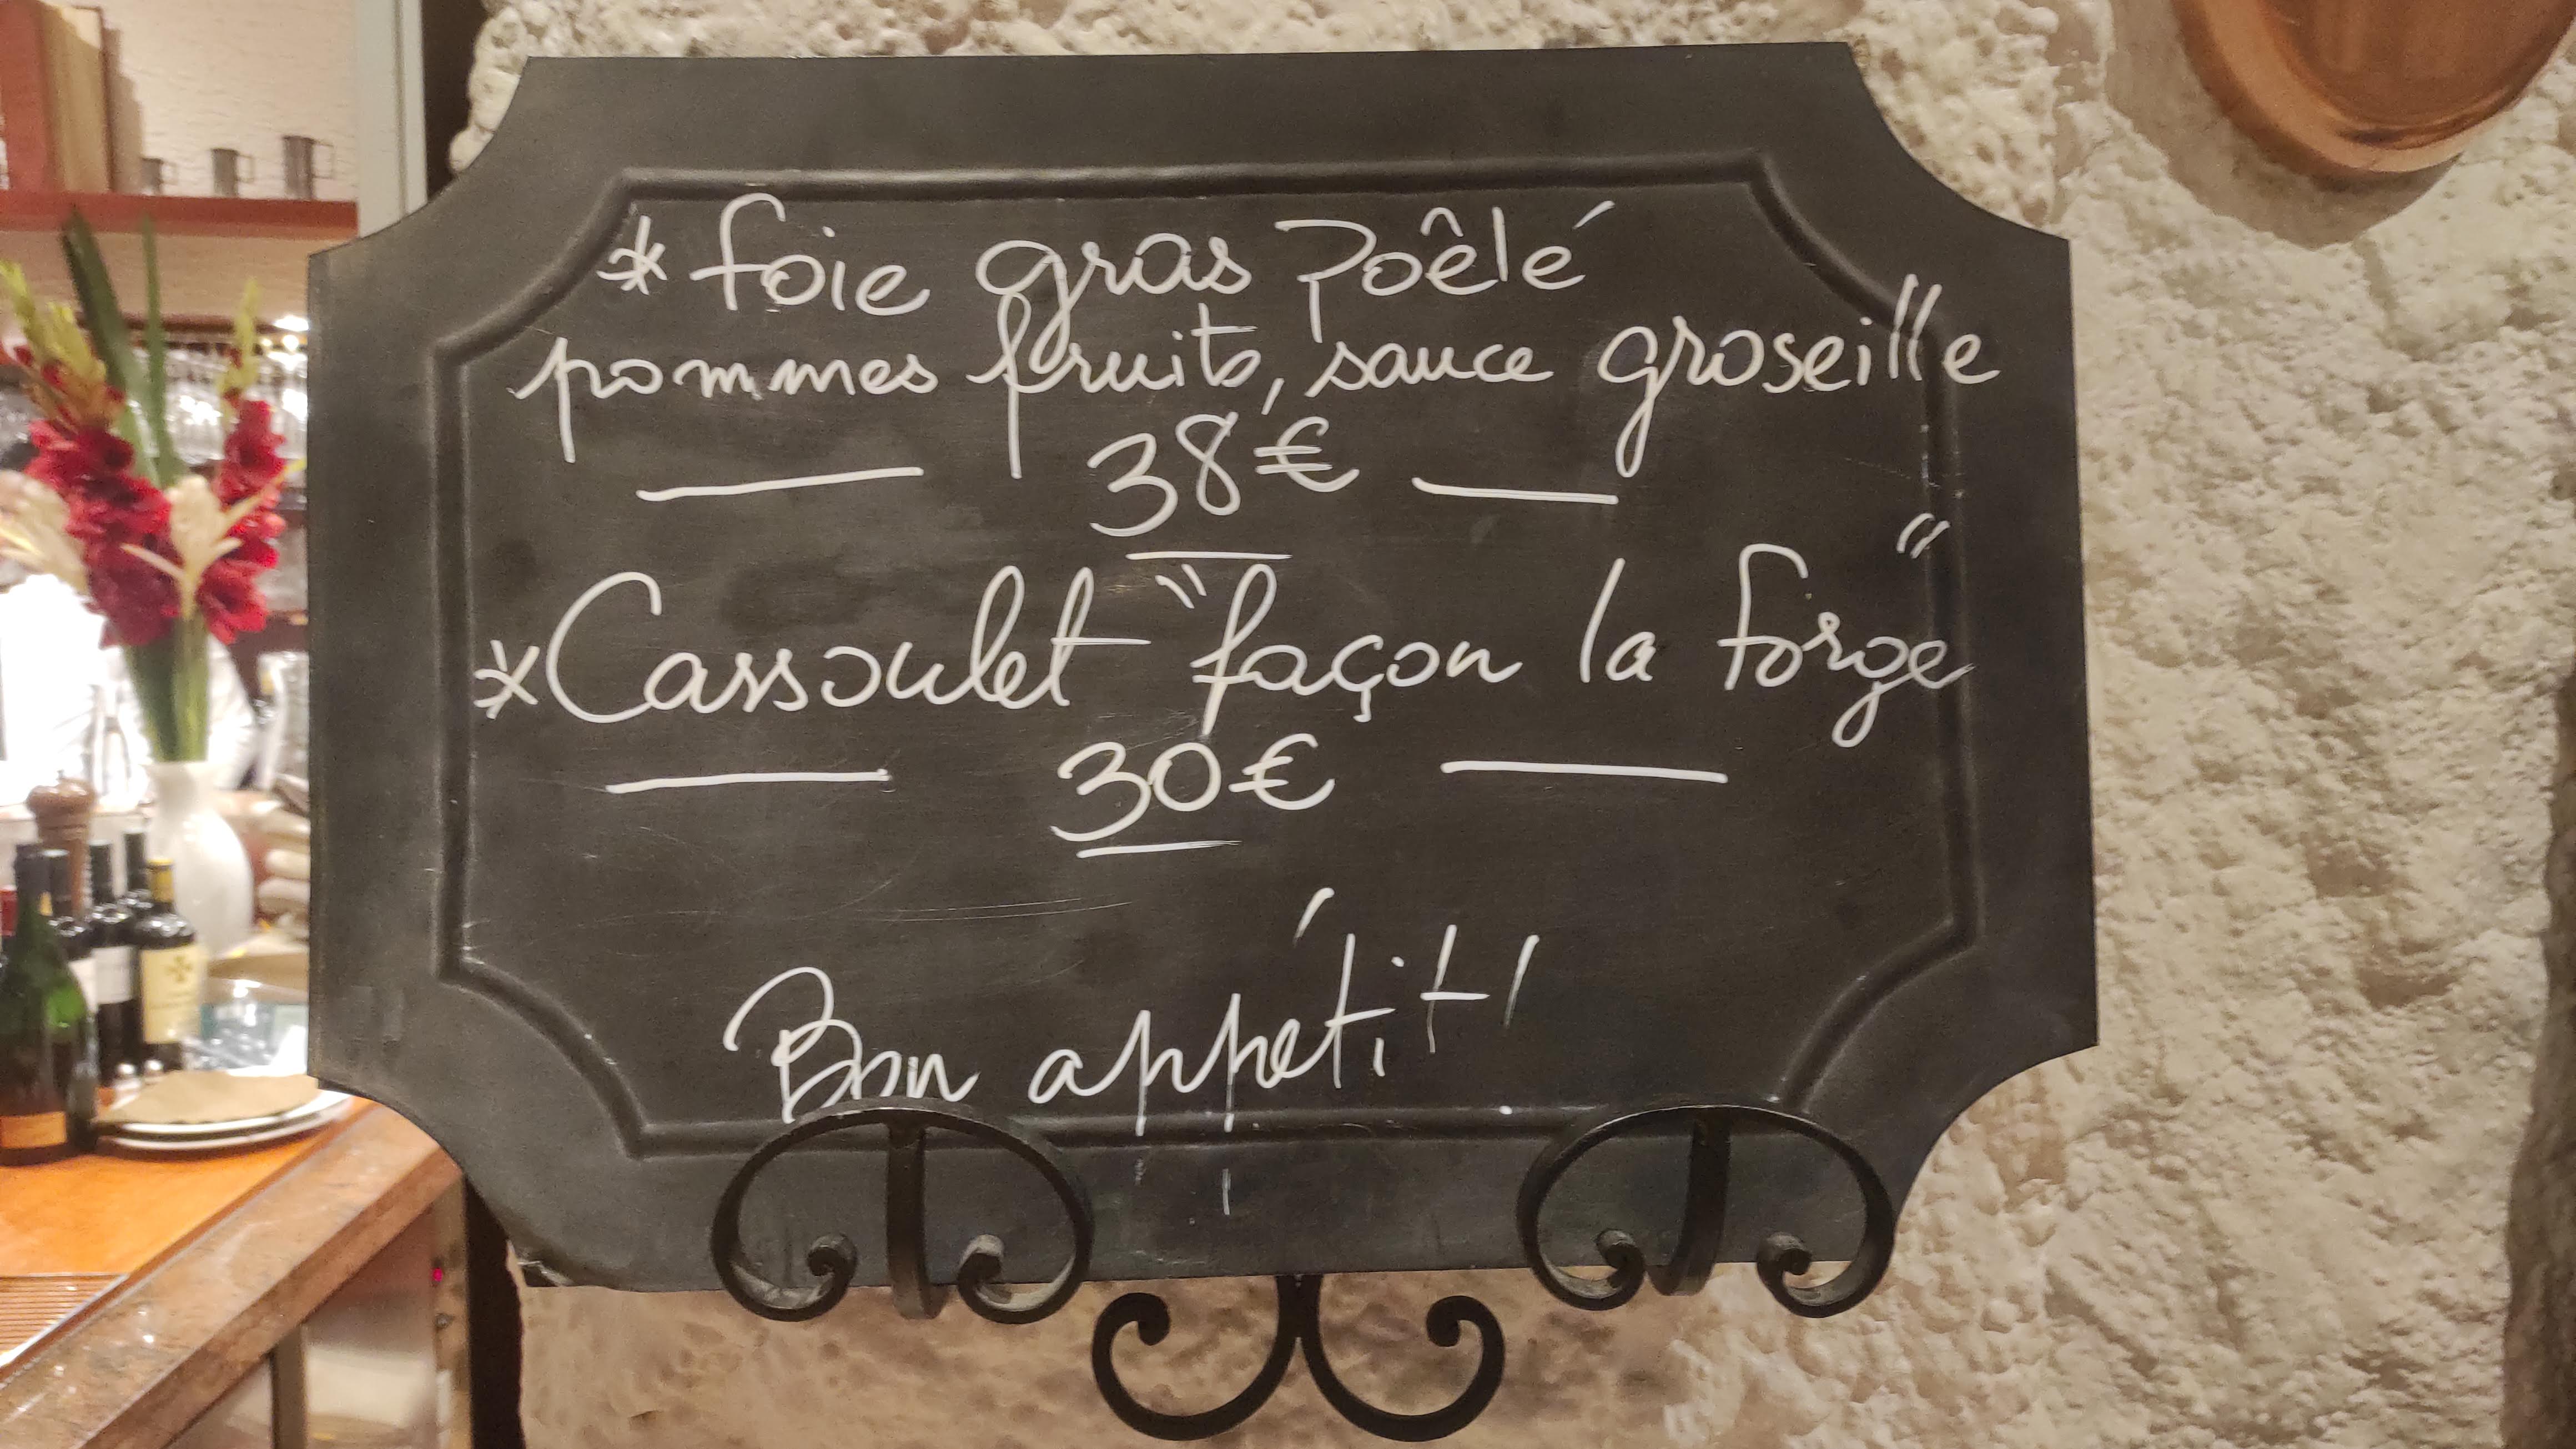 * foie gras Poêlé
pommes fruits, sauce groseille
38€
*Cassoulet "façon la forge"
30€
Bon appétit!